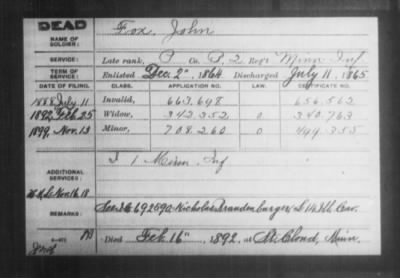 DEAD
NAME OF SOLDIER: Fox, John
SERVICE: Late rank, P Co. B, 2 Reg't Minn Inf
TERM OF SERVICE: Enlisted Dec. 2", 1864 Discharged July 11, 1865
DATE OF FILING. CLASS. APPLICATION NO. LAW. CERTIFICATE NO.
1888 July 11 Invalid, 663.698 656.562
1892, Feb 25 Widow, 542.352 0 340.763
1899, Nov. 13 Minor, 708.260 0 499.355
ADDITIONAL SERVICES: I 1 Minn. Inf
Nov 16.18
REMARKS: See 692590 Nicholas Brandenburger, Cav.
Died Feb 16", 1892, at St. Cloud, Minn.